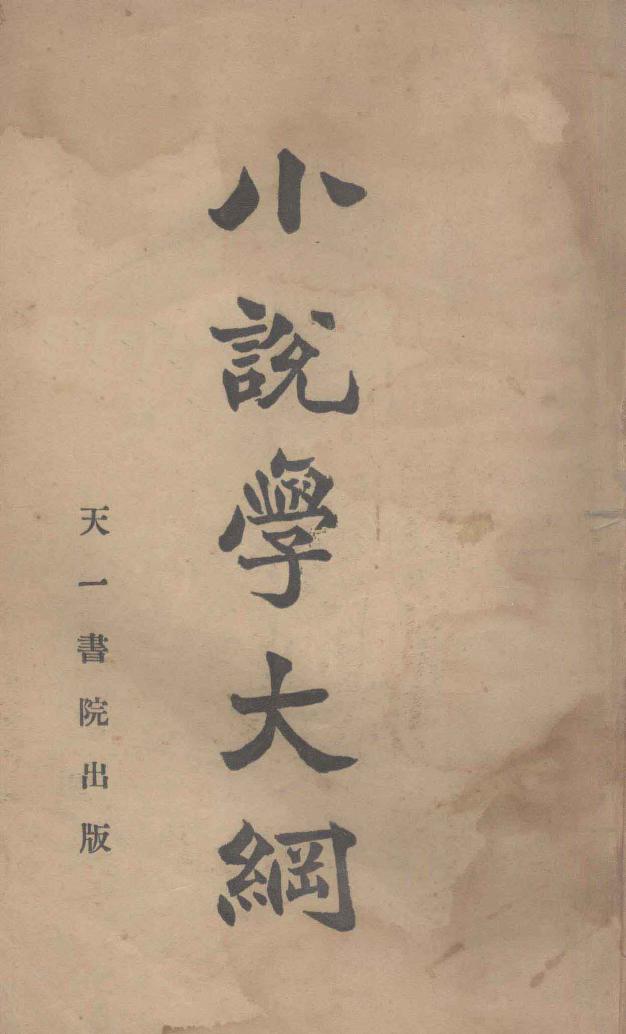 小說學大綱
天一書院出版